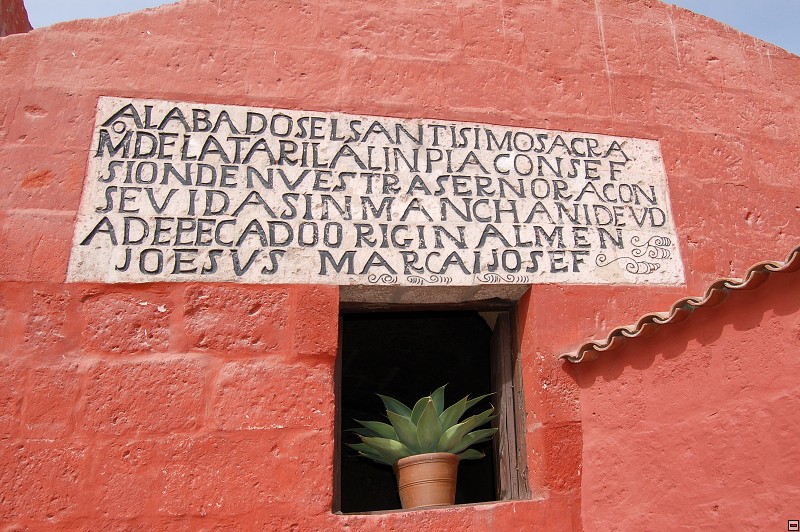 ALABADOSELSANTISIMOSACRA
MDELATARILALINPIACONSEF
SIONDENVESTRASERNORACON
SEVIDASINMANCHANIDEVD
ADEPECADOORIGINALMEN
JOESVS MARCAIJOSEF